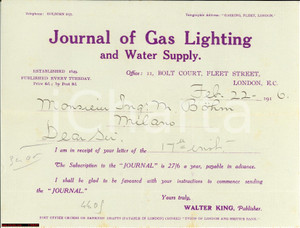 Telephone: HOLBORN 857.
Telegraphic Address: "GASKING, FLEET, LONDON."
Journal of Gas Lighting
and Water Supply.
ESTABLISHED 1849.
PUBLISHED EVERY TUESDAY.
Price 6d.; by Post 8d.
Office: 11, BOLT COURT, FLEET STREET,
LONDON, E.C.
Feb. 22 1916
Monsieur Ing: M. Böhm
Milano
Dear Sir.
I am in receipt of your letter of the 17th inst.
The Subscription to the "JOURNAL" is 27/6 a year, payable to advance.
I shall be glad to be favoured with your instructions to commence sending
the "JOURNAL."
Yours truly,
WALTER KING, Publisher.